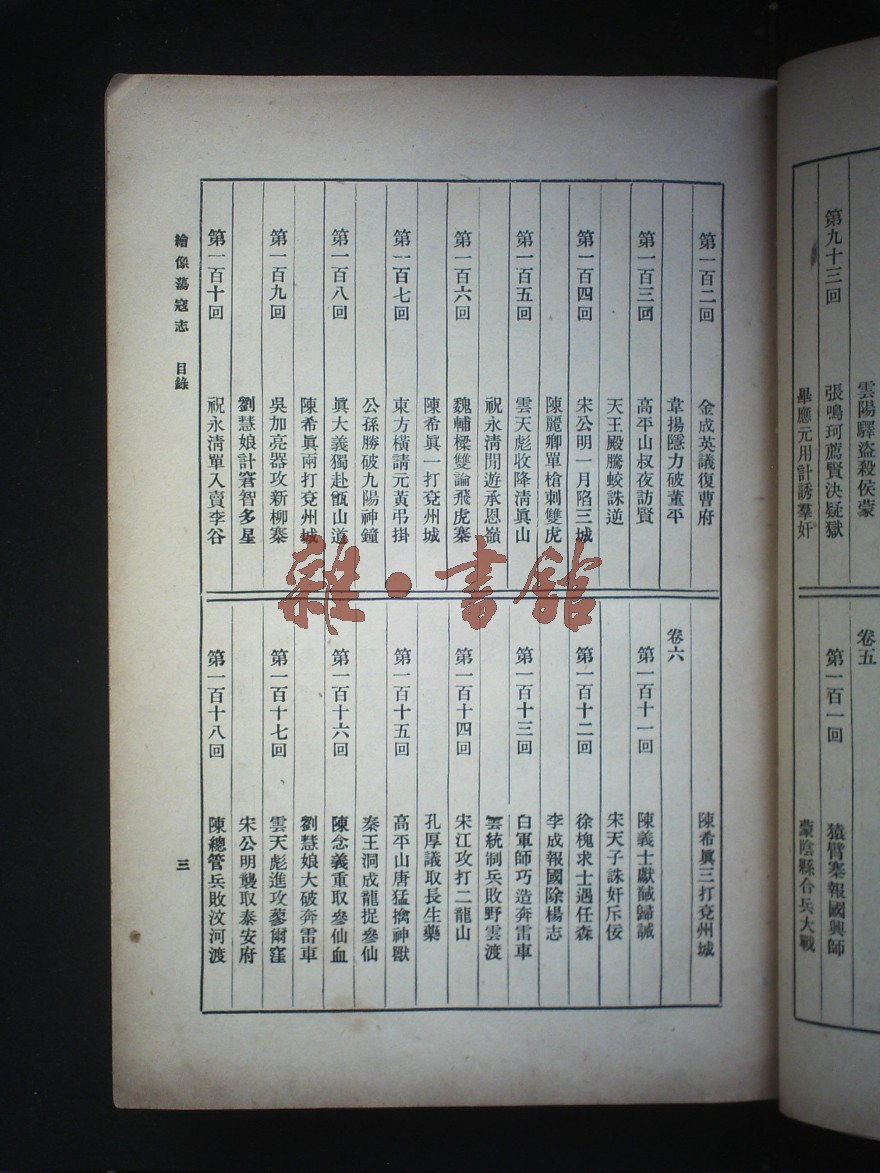 雲陽驛盜殺侯蒙
第九十三回
張鳴珂薦賢決疑獄
畢應元用計誘羣奸
卷五
第一百一回
猿臂寨報國興師
蒙陰縣合兵大戰
第一百二回
金成英議復曹府
韋揚隱力破董平
第一百三回
高平山叔夜訪賢
天王殿騰蛟誅逆
第一百四回
宋公明一月陷三城
陳麗卿單槍刺雙虎
第一百五回
雲天彪收降清眞山
祝永清閒遊承恩嶺
第一百六回
魏輔樑雙論飛虎寨
陳希眞一打兗州城
第一百七回
東方橫請元黃弔掛
公孫勝破九陽神鐘
第一百八回
眞大義獨赴甑山道
陳希眞兩打兗州城
第一百九回
吳加亮器攻新柳寨
劉慧娘計窘智多星
第一百十回
祝永清單入賣李谷
陳希眞三打兗州城
卷六
第一百十一回
陳義士獻馘歸誠
宋天子誅奸斥佞
第一百十二回
徐槐求士遇任森
李成報國除楊志
第一百十三回
白軍師巧造奔雷車
雲統制兵敗野雲渡
第一百十四回
宋江攻打二龍山
孔厚議取長生藥
第一百十五回
高平山唐猛擒神獸
秦王洞成龍捉參仙
第一百十六回
陳念義重取參仙血
劉慧娘大破奔雷車
第一百十七回
雲天彪進攻蓼爾窪
宋公明襲取泰安府
第一百十八回
陳總管兵敗汶河渡
繪像蕩寇志 目錄
三
雜·書館